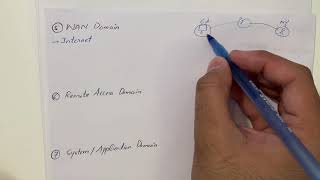 ⑤ WAN Domain
→ Internet
⑥ Remote Access Domain
⑦ System/Application Domain